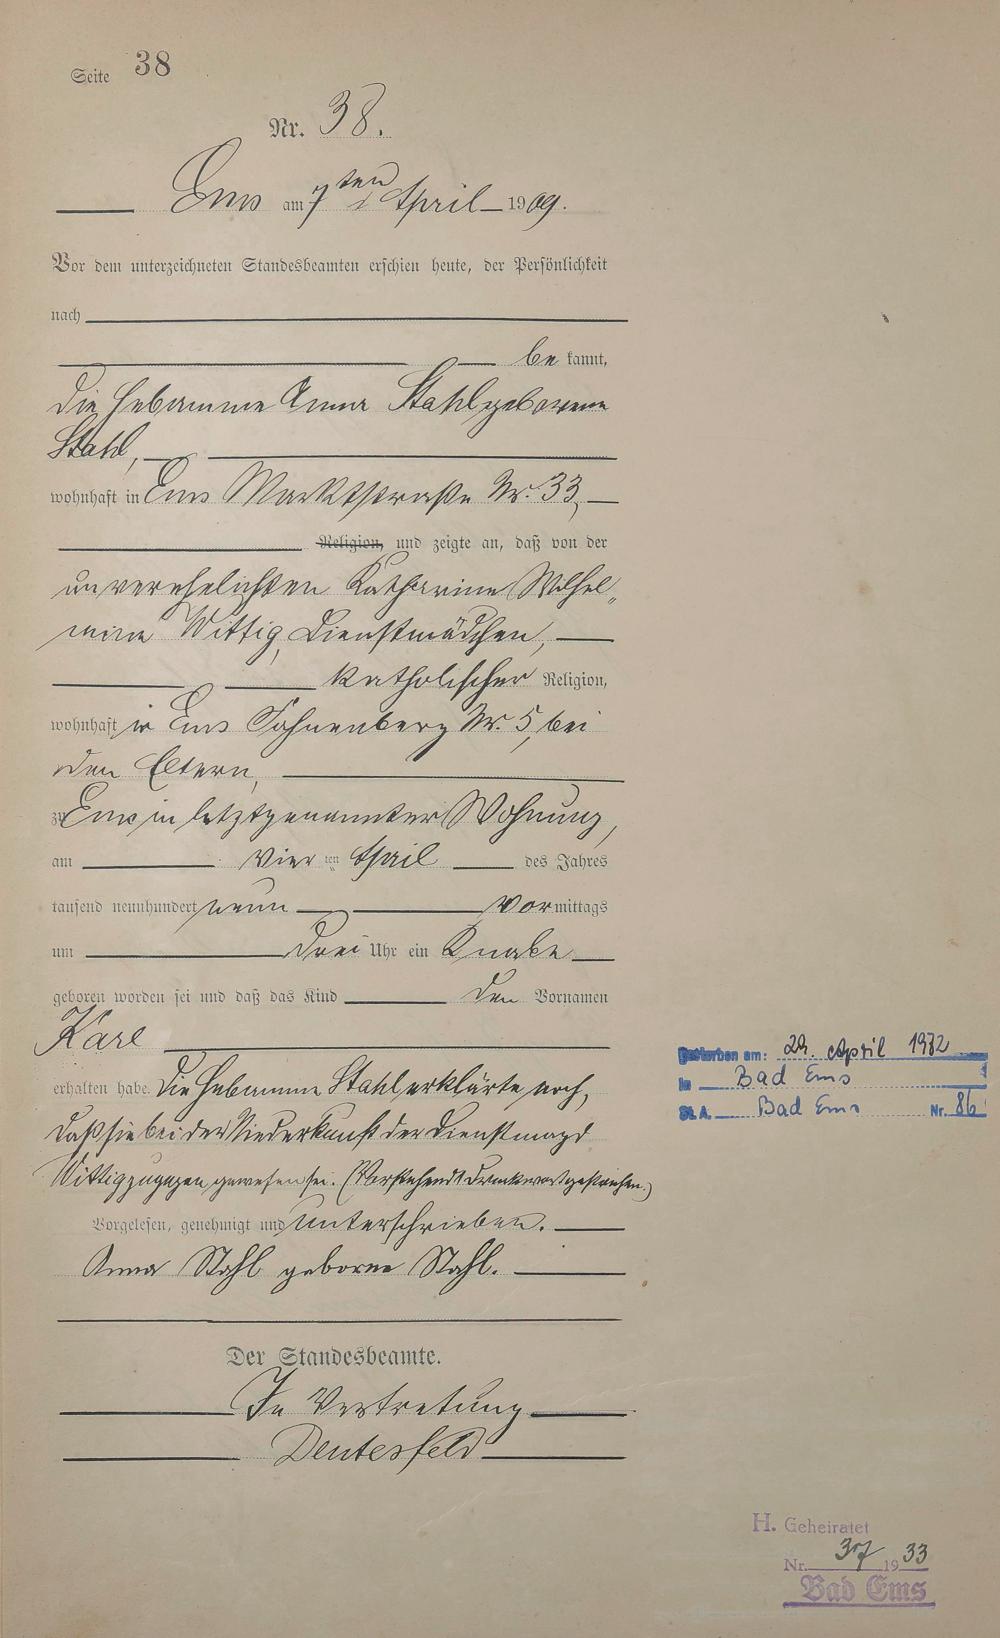 Seite 38
Nr. 38.
Ems am 7ten April 1909.
Vor dem unterzeichneten Standesbeamten erschien heute, der Persönlichkeit
nach
be kannt,
die Hebamme Anna Stahl geborene
Stahl,
wohnhaft in Ems Marktstraße Nr. 33,
Religion, und zeigte an, daß von der
unverehelichten Katharina Wilhel„
mine Wittig, Dienstmädchen,
katholischer Religion,
wohnhaft in Ems Nr. 5, bei
den Eltern,
zu Ems in letztgenannter Wohnung,
am vier ten April des Jahres
tausend neunhundert neun Vormittags
um drei Uhr ein Knabe
geboren worden sei und daß das Kind den Vornamen
Karl
erhalten habe. Die Hebamme Stahl erklärte noch,
daß sie bei der Niederkunft der Dienstmagd
Wittig zugegen gewesen sei. (Vorstehend 1 Druckwort gestrichen.)
Vorgelesen, genehmigt und unterschrieben.
Anna Stahl geborne Stahl.
Der Standesbeamte.
In Vertretung
Deutesfeld
Gestorben am: April 1972
in Bad Ems
St. A. Bad Ems Nr. 86
H. Geheiratet
Nr. 37 1933
Bad Ems